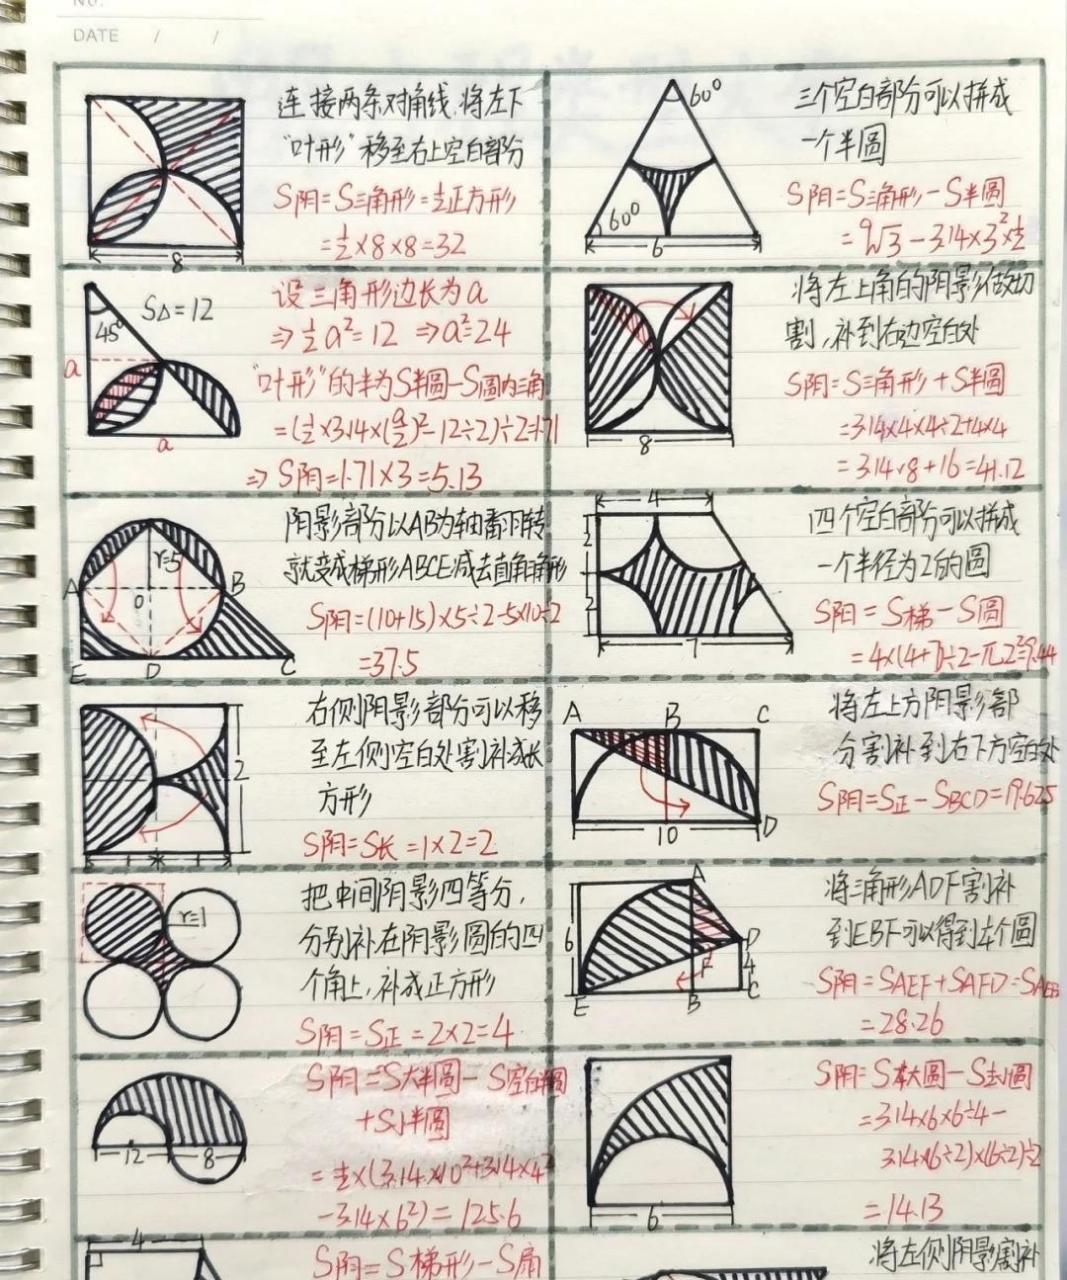 NO.
DATE / /
8
连接两条对角线,将左下
"叶形"移至右上空白部分
S阴=S三角形=½正方形
=½×8×8=32
60°
60°
6
三个空白部分可以拼成
一个半圆
S阴=S三角形-S半圆
=9√3-3.14×3²×½
45°
S△=12
a
a
设三角形边长为a
⇒½a²=12 ⇒a²=24
"叶形"的半为S半圆-S圆内三角
=(½×3.14×(a/2)²-12÷2)÷2=1.71
⇒S阴=1.71×3=5.13
8
将左上角的阴影做切
割,补到右边空白处
S阴=S三角形+S半圆
=3.14×4×4÷2+4×4
=3.14×8+16=41.12
r=5
A
B
O
E
D
C
阴影部分以AB为轴翻转
就变成梯形ABCE减去直角三角形
S阴=(10+15)×5÷2-5×10÷2
=37.5
4
2
2
7
四个空白部分可以拼成
一个半径为2的圆
S阴=S梯-S圆
=4×(4+7)÷2-π·2²=9.44
2
1
1
右侧阴影部分可以移
至左侧空白处割补成长
方形
S阴=S长=1×2=2
A
B
C
10
D
将左上方阴影部
分割补到右下方空白处
S阴=S正-SBCD=19.625
r=1
把中间阴影四等分,
分别补在阴影圆的四
个角上,补成正方形
S阴=S正=2×2=4
A
6
D
F
4
E
B
C
将三角形ADF割补
到EBF可以得到¼个圆
S阴=SAEF+SAFD=SAEB
=28.26
12
8
S阴=S大半圆-S空白半圆
+S小半圆
=½×(3.14×10²+3.14×4²
-3.14×6²)=125.6
6
S阴=S¼大圆-S½小圆
=3.14×6×6÷4-
3.14×(6÷2)×(6÷2)÷2
=14.13
4
S阴=S梯形-S扇
将左侧阴影割补